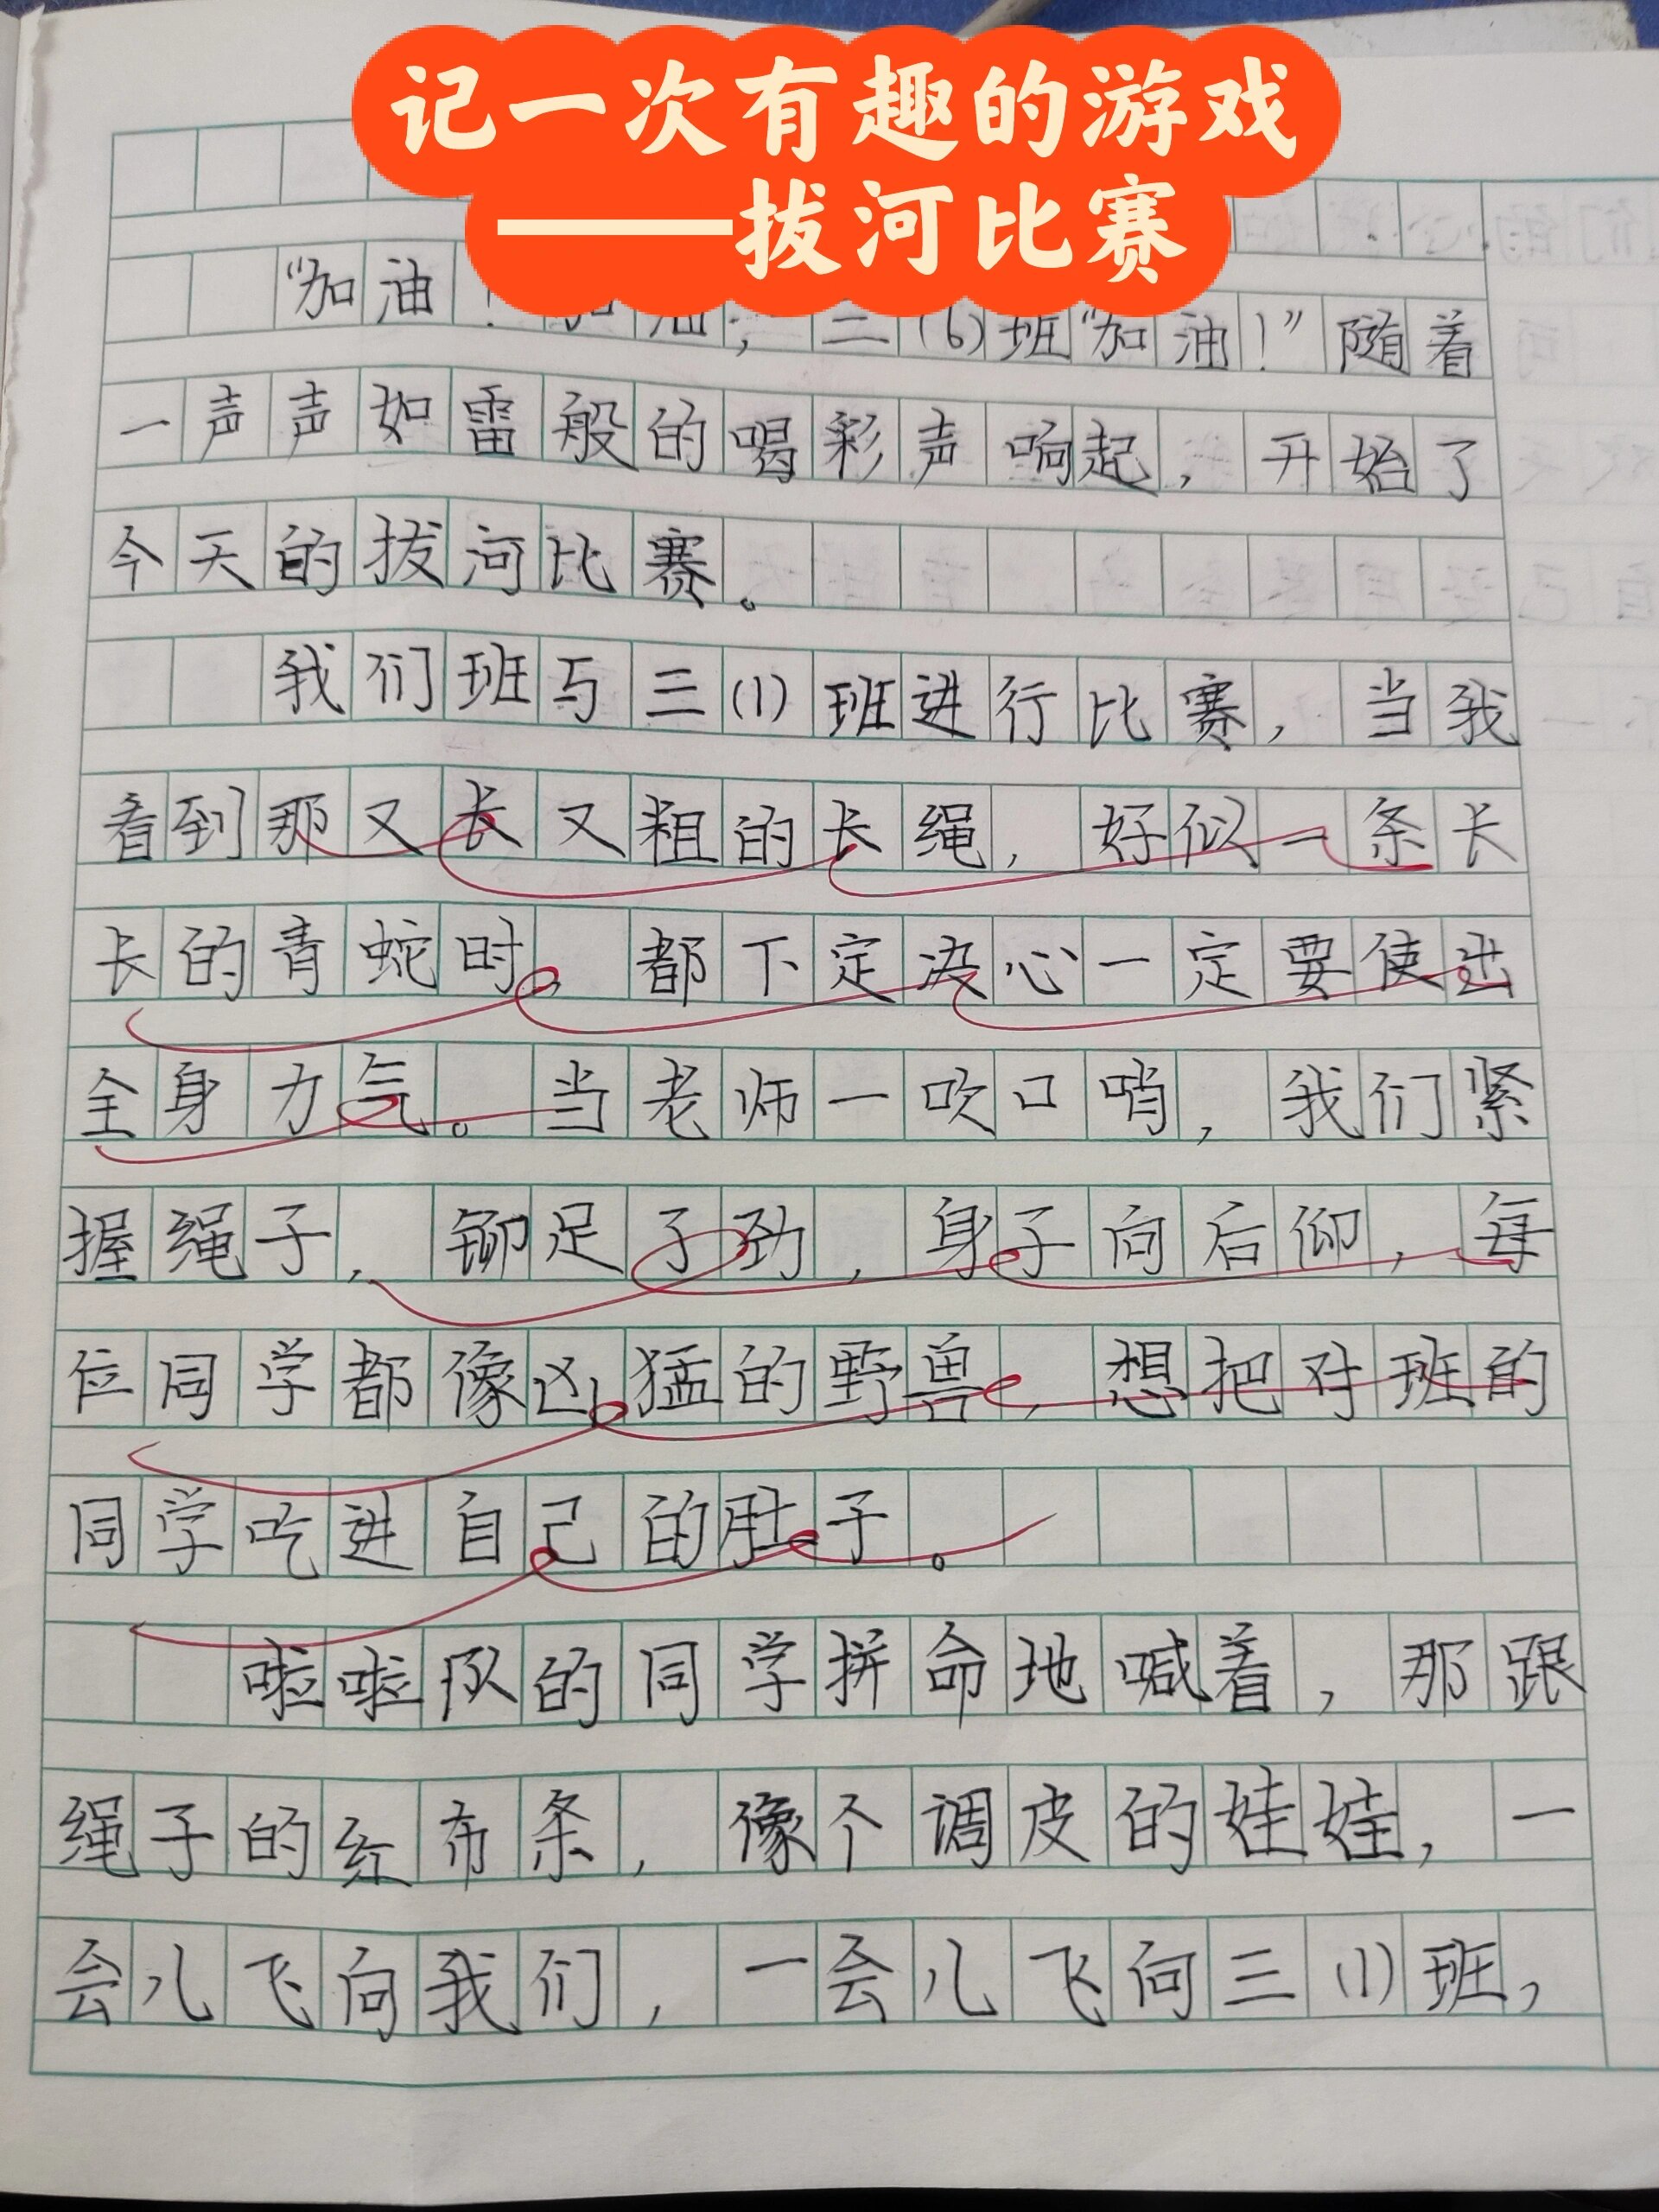 记一次有趣的游戏
——拔河比赛
“加油！加油，三(6)班“加油！”随着
一声声如雷般的喝彩声响起，开始了
今天的拔河比赛。
我们班与三(1)班进行比赛，当我
看到那又长又粗的长绳，好似一条长
长的青蛇时，都下定决心一定要使出
全身力气。当老师一吹口哨，我们紧
握绳子，铆足了劲，身子向后仰，每
位同学都像凶猛的野兽，想把对班的
同学吃进自己的肚子。
啦啦队的同学拼命地喊着，那跟
绳子的红布条，像个调皮的娃娃，一
会儿飞向我们，一会儿飞向三(1)班，